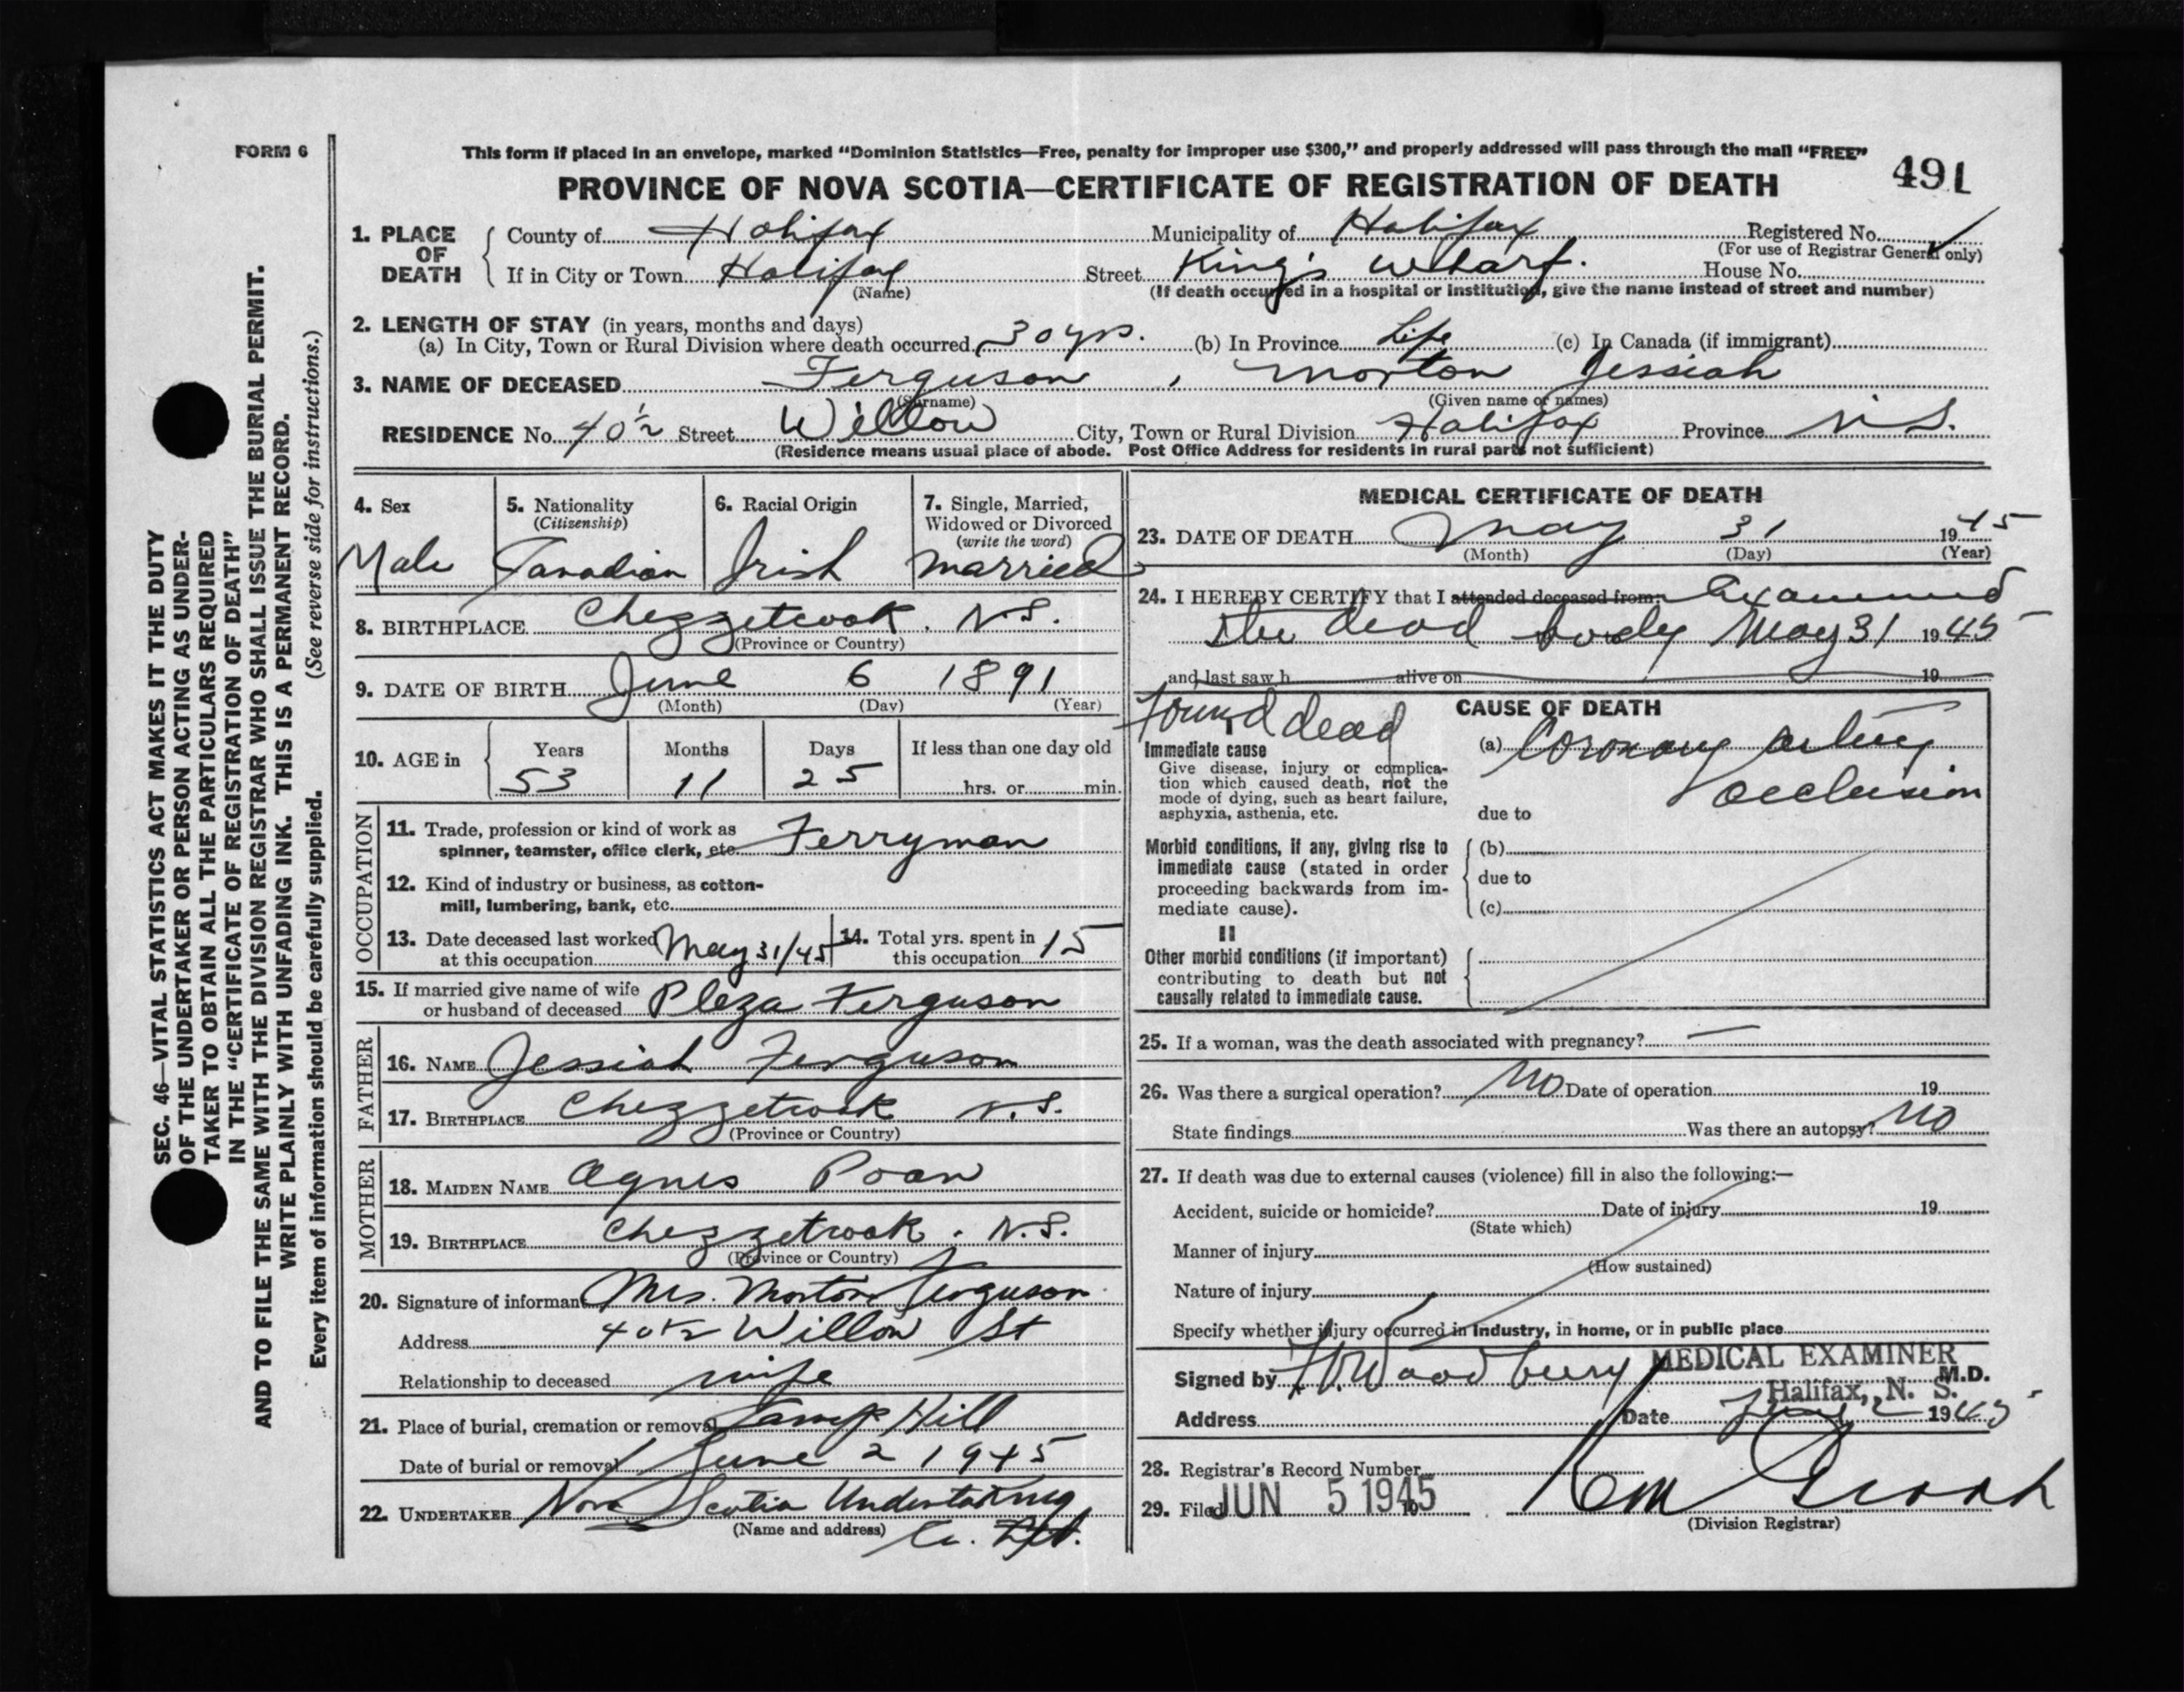 FORM 6
This form if placed in an envelope, marked “Dominion Statistics—Free, penalty for improper use $300,” and properly addressed will pass through the mail “FREE”
491
PROVINCE OF NOVA SCOTIA—CERTIFICATE OF REGISTRATION OF DEATH
1. PLACE OF DEATH
County of Halifax Municipality of Halifax Registered No.
(For use of Registrar General only)
If in City or Town Halifax Street King's Wharf. House No.
(Name) (If death occurred in a hospital or institution, give the name instead of street and number)
2. LENGTH OF STAY (in years, months and days)
(a) In City, Town or Rural Division where death occurred 30 yrs. (b) In Province Life (c) In Canada (if immigrant)
3. NAME OF DECEASED Ferguson, Morton Jessiah
(Surname) (Given name or names)
RESIDENCE No. 40½ Street Willow City, Town or Rural Division Halifax Province N.S.
(Residence means usual place of abode. Post Office Address for residents in rural parts not sufficient)
4. Sex
Male
5. Nationality
(Citizenship)
Canadian
6. Racial Origin
Irish
7. Single, Married,
Widowed or Divorced
(write the word)
Married
8. BIRTHPLACE Chezzetcook. N.S.
(Province or Country)
9. DATE OF BIRTH June 6 1891
(Month) (Day) (Year)
10. AGE in Years Months Days If less than one day old
53 11 25 hrs. or min.
OCCUPATION
11. Trade, profession or kind of work as
spinner, teamster, office clerk, etc. Ferryman
12. Kind of industry or business, as cotton-
mill, lumbering, bank, etc.
13. Date deceased last worked
at this occupation May 31/45
14. Total yrs. spent in
this occupation 15
15. If married give name of wife
or husband of deceased Pleza Ferguson
FATHER
16. NAME Jessiah Ferguson
17. BIRTHPLACE Chezzetcook N.S.
(Province or Country)
MOTHER
18. MAIDEN NAME Agnes Poan
19. BIRTHPLACE Chezzetcook. N.S.
(Province or Country)
20. Signature of informant Mrs. Morton Ferguson
Address 40½ Willow St
Relationship to deceased wife
21. Place of burial, cremation or removal Camp Hill
Date of burial or removal June 2 1945
22. UNDERTAKER Nova Scotia Undertaking
(Name and address) Co. Ltd.
MEDICAL CERTIFICATE OF DEATH
23. DATE OF DEATH May 31 1945
(Month) (Day) (Year)
24. I HEREBY CERTIFY that I attended deceased from: Examined
the dead body May 31 1945
and last saw h alive on 19
found dead
CAUSE OF DEATH
Immediate cause
Give disease, injury or complica-
tion which caused death, not the
mode of dying, such as heart failure,
asphyxia, asthenia, etc.
(a) Coronary artery
occlusion
due to
Morbid conditions, if any, giving rise to
immediate cause (stated in order
proceeding backwards from im-
mediate cause).
(b)
due to
(c)
II
Other morbid conditions (if important)
contributing to death but not
causally related to immediate cause.
25. If a woman, was the death associated with pregnancy? —
26. Was there a surgical operation? No Date of operation 19
State findings Was there an autopsy? No
27. If death was due to external causes (violence) fill in also the following:—
Accident, suicide or homicide? Date of injury 19
(State which)
Manner of injury
(How sustained)
Nature of injury
Specify whether injury occurred in industry, in home, or in public place
Signed by Woodbury MEDICAL EXAMINER M.D.
Halifax, N. S.
Address Date June 2 1945
28. Registrar's Record Number
29. Filed JUN 5 1945 19
(Division Registrar)
SEC. 46—VITAL STATISTICS ACT MAKES IT THE DUTY
OF THE UNDERTAKER OR PERSON ACTING AS UNDER-
TAKER TO OBTAIN ALL THE PARTICULARS REQUIRED
IN THE “CERTIFICATE OF REGISTRATION OF DEATH”
AND TO FILE THE SAME WITH THE DIVISION REGISTRAR WHO SHALL ISSUE THE BURIAL PERMIT.
WRITE PLAINLY WITH UNFADING INK. THIS IS A PERMANENT RECORD.
Every item of information should be carefully supplied. (See reverse side for instructions.)